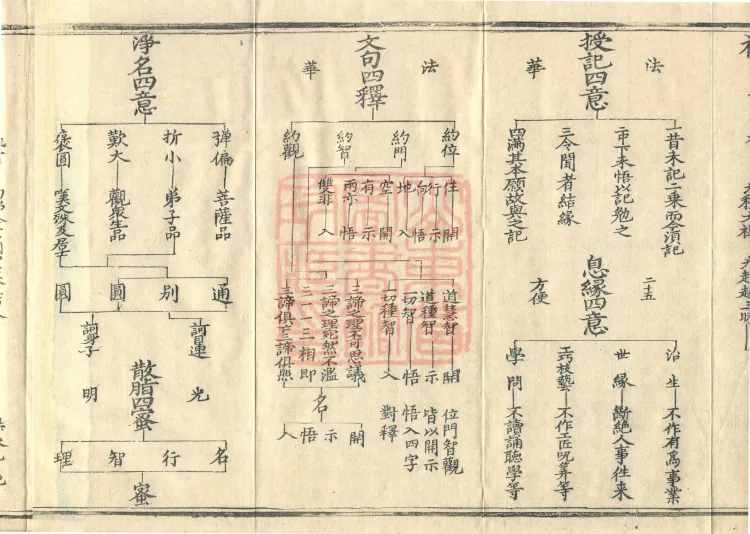 授記四意
法
華
一昔未記二乘而今須記
二中下未悟以記勉之
三令聞者結緣
四滿其本願故與之記
息緣四意
二五
方便
治生 不作有為事業
世緣 斷絕人事往来
工巧技藝 不作工匠呪筭等
學問 不讀誦聽學等
文句四釋
法
華
約位 住開 行示 向悟 地入
約門 空開 有示 兩亦悟 雙非入
約智 道慧智開 道種智示 一切智悟 一切種智入
約觀
三諦之理不可思議 開
三諦之理宛然不濫 示
三一一三相即 悟
三諦俱照 入
名
位門智觀
皆以開示
悟入四字
對釋
淨名四意
彈偏 菩薩品
折小 弟子品
歎大 觀衆生品
褒圓
通
別
圓
圓
訶目連
訶身子
散脂四蜜
光
明
名
行
智
理
蜜